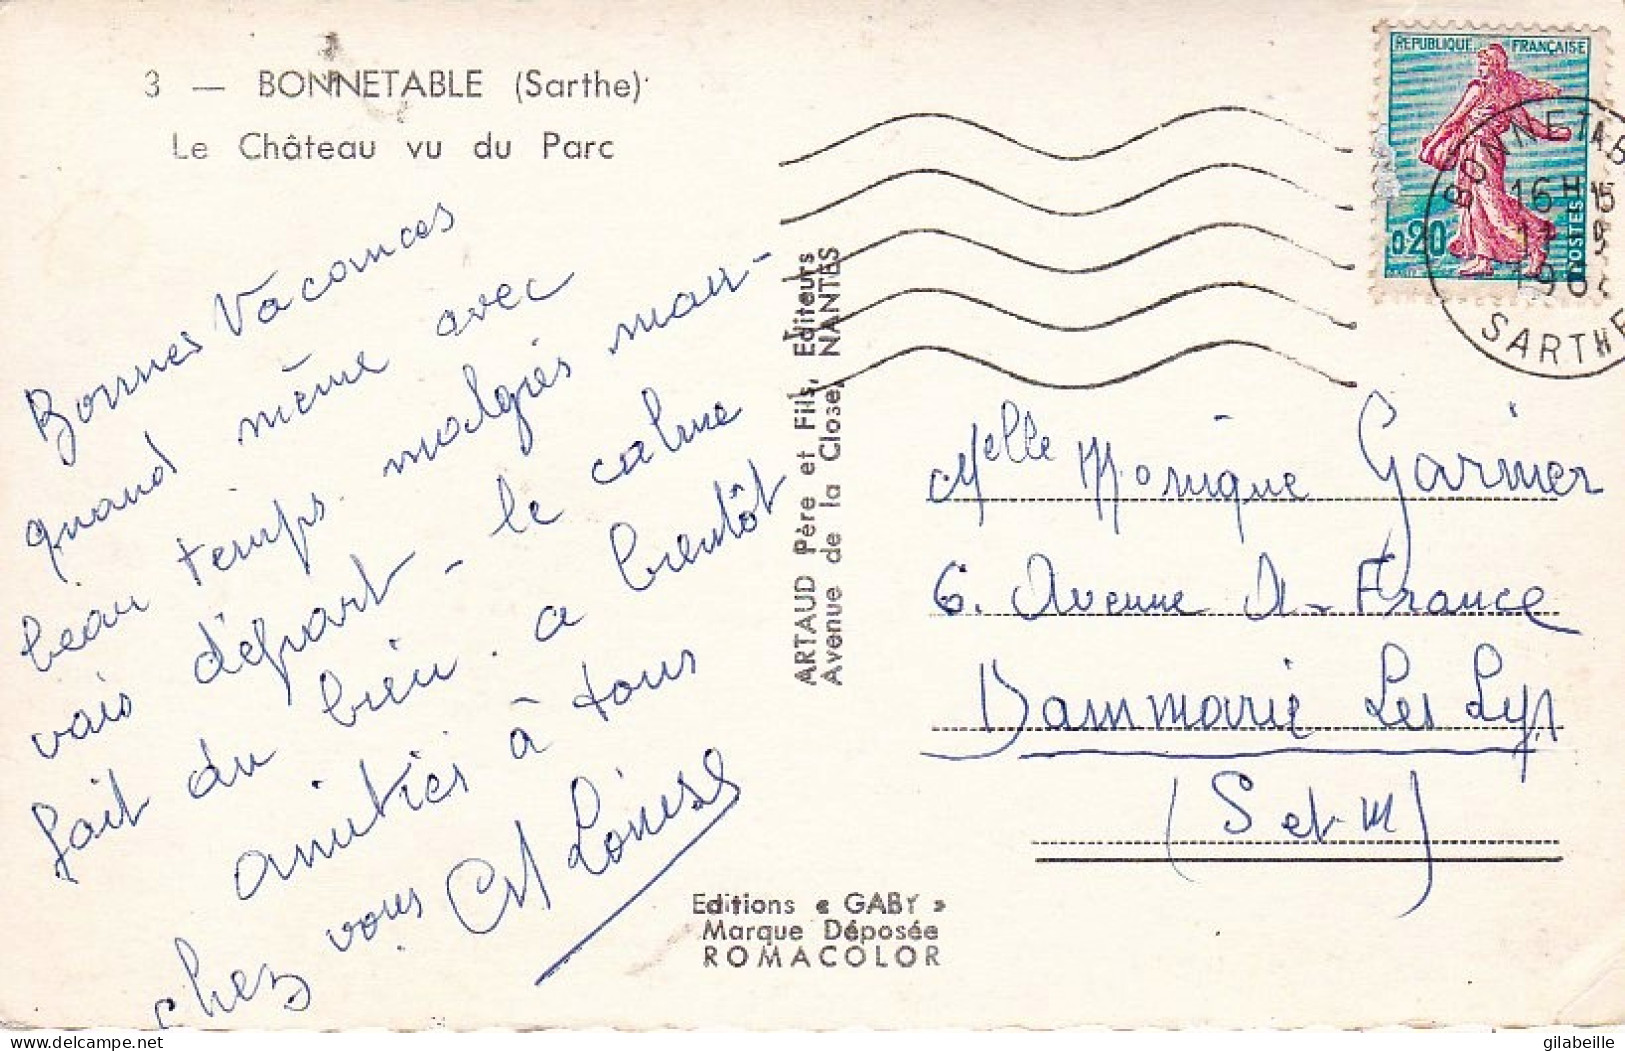 3 — BONNETABLE (Sarthe)
Le Château vu du Parc
Bonnes Vacances
quand même avec
beau temps. malgrés mau-
vais départ - le calme
fait du bien. a bientôt
amitiés à tous
chez vous
Louise
ARTAUD Père et Fils, Editeurs
Avenue de la Close, NANTES
Editions « GABY »
Marque Déposée
ROMACOLOR
REPUBLIQUE FRANÇAISE
0,20
POSTES
BONNETAB
16H15
196
SARTHE
Melle Monique Garnier
6. Avenue A-France
Dammarie Les Lys
(S et M)
delcampe.net
gilabeille